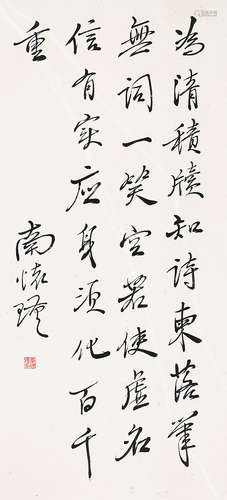 為清積牘知詩東落筆
無詞一笑空若使虛名
信有実应身須化百千
重
南懐瑾